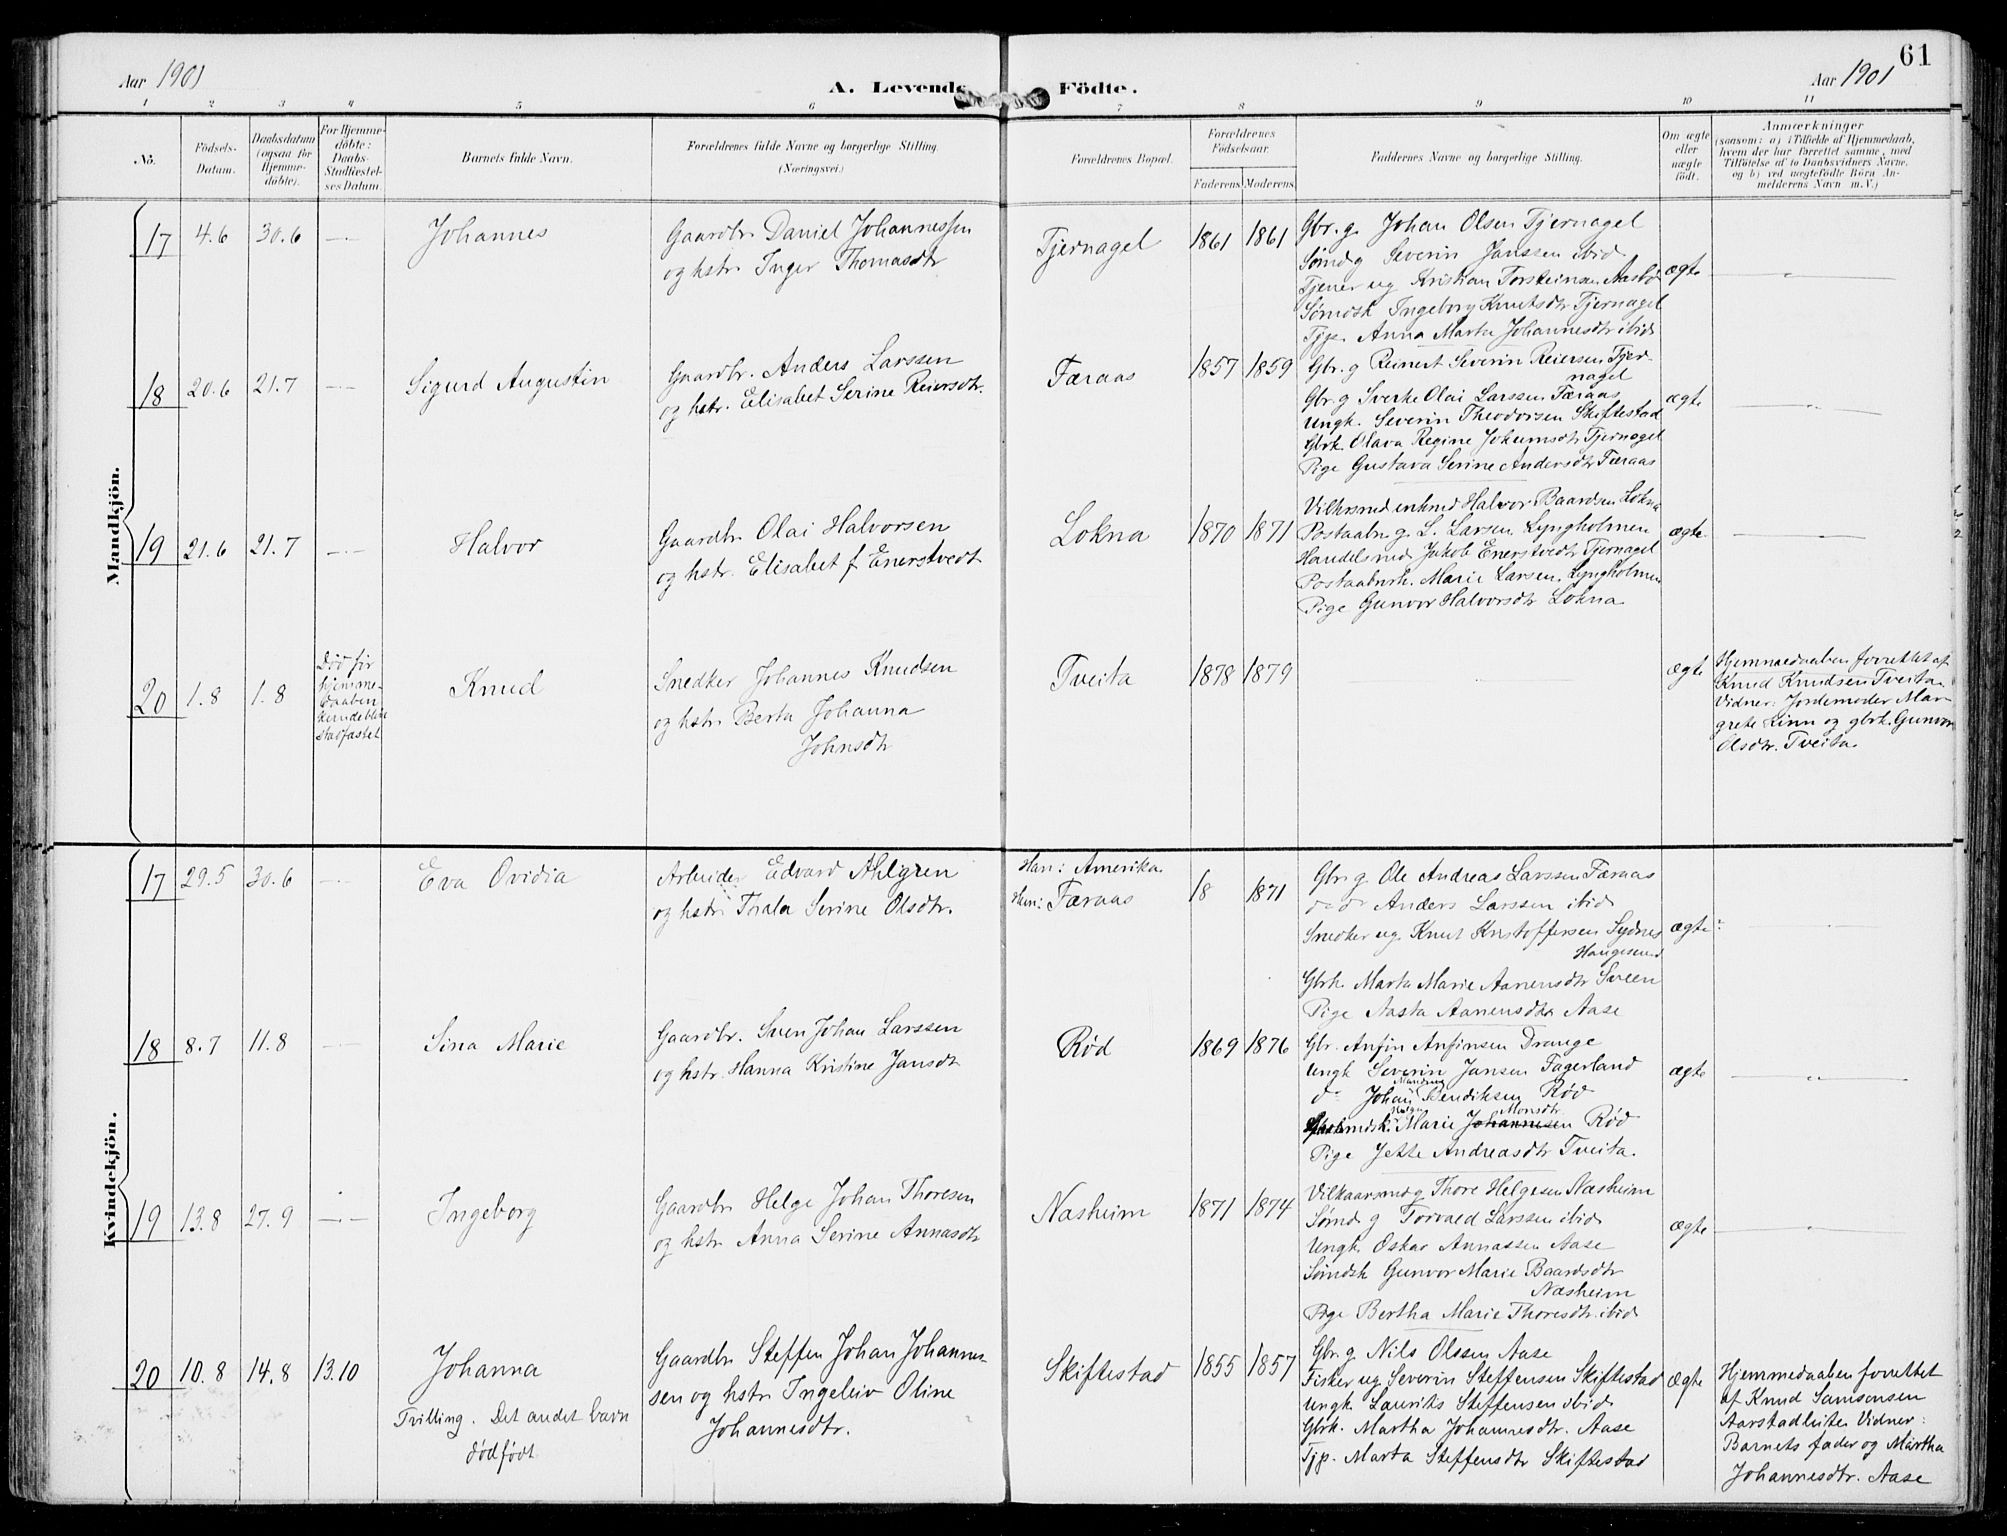 61
Aar 1901
A. Levende Födte.
Aar 1901
1 2 3 4 5 6 7 8 9 10 11
No.
Födsels-Datum.
Daabsdatum (ogsaa for Hjemme-döbte).
For Hjemme-döbte: Daabs-Stadfæstel-ses Datum.
Barnets fulde Navn.
Forældrenes fulde Navne og borgerlige Stilling.
(Næringsvei.)
Forældrenes Bopæl.
Forældrenes Födselsaar.
Faderens. Moderens.
Faddernes Navne og borgerlige Stilling.
Om ægte eller uægte födt.
Anmærkninger
(saasom: a) i Tilfælde af Hjemmedaab,
hvem der har forrettet samme, med
Tilföielse af to Daabsvidners Navne,
og b) ved uægtefödte Börn An-
melderens Navn m. V.)
Mandkjön.
17 4.6 30.6 —"— Johannes
Gaardbr. Daniel Johannessen
og hstr. Inger Thomasdtr
Tjernagel 1861 1861
Gbr. g. Johan Olsen Tjernagel
Sømd g Severin Janssen ibid
Tjener ug Kristian Torsteinsen Aasbø
Sømdsk Ingeborg Knutsdtr Tjernagel
Tjp. Anna Marta Johannesdtr ibid
ægte —"—
18 20.6 21.7 —"— Sigurd Augustin
Gaardbr. Anders Larssen
og hstr. Elisabet Serine Reiersdtr.
Færaas 1857 1859
Gbr. g Reinert Severin Reiersen Tjer-
nagel
Gbr. g Sverke Olai Larssen Færaas
Ungk. Severin Theodorsen Skiftestad
Gbrk. Olava Regine Joheimsdtr Tjernagel
Pige Gustava Serine Andersdtr Færaas
ægte —"—
19 21.6 21.7 —"— Halvor
Gaardbr Olai Halvorsen
og hstr. Elisabet f Enerstvedt
Lokna 1870 1871
Vilkrsmd enkmd Halvor Baardsen Lokna
Postaabn g. L. Larsen Lyngholmen
Handelsmd Jakob Enerstvedt Tjernagel
Postaabnrk. Marie Larsen Lyngholmen
Pige Gunvor Halvorsdtr Lokna
ægte —"—
20 1.8 1.8
Död før
hjemme-
daaben
kunde blive
stadfæstet
Knud
Snedker Johannes Knudsen
og hstr Berta Johanna
Johnsdtr
Tveita 1878 1879
ægte
Hjemmedaaben forrettet af
Knud Knudsen Tveita.
Vidner: Jordemoder Mar-
grete Linn og gbrk. Gunvor
Olsdtr. Tveita.
Kvindekjön.
17 29.5 30.6 —"— Eva Ovidia
Arbeider Edvard Ahlgren
og hstr Thala Serine Olsdtr.
Han: Amerika
Hun: Færaas
18 1871
Gbr. g Ole Andreas Larssen Færaas
do do Anders Larssen ibid
Snedker ug. Knut Kristoffersen Sydnes
Haugesund
Gbrk. Marta Marie Aanensdtr Sveen
Pige Aasta Aanensdtr Aase
ægte
18 8.7 11.8 Sina Marie
Gaardbr. Sven Johan Larssen
og hstr. Hanna Kristine Jansdtr
Rød 1869 1876
Gbr. Anfin Anfinsen Drange
Ungk Severin Jansen Fagerland
do Johan Mandrup Bendiksen Rød
Marie Johannesen Monsdtr Rød
Pige Jette Andreasdtr Tveita.
ægte —"—
19 13.8 27.9 —"— Ingeborg
Gaardbr Helge Johan Thoresen
og hstr Anna Serine Annasdtr
Næsheim 1871 1874
Vilkaarsmd g Thore Helgesen Næsheim
Sømd g Torvald Larssen ibid
Ungk Oskar Annassen Aase
Sømdsk Gunvor Marie Baardsdtr
Næsheim
Pige Bertha Marie Thoresdtr ibid
ægte —"—
20 10.8 14.8 13.10 Johanna
Tvilling. Det andet barn
dödfödt
Gaardbr Steffen Johan Johannes-
sen og hstr Ingeleiv Oline
Johannesdtr.
Skiftestad 1855 1857
Gbr. g Nils Olssen Aase
Fisker ug Severin Steffensen Skiftestad
Ungk Laurits Steffensen ibid
Gbrk. Martha Johannesdtr. Aase
Tjp. Marta Steffensdtr Skiftestad
ægte
Hjemmedaaben forrettet
af Knud Samsonsen
Aarstadleite. Vidner:
Barnets fader og Martha
Johannesdtr. Aase